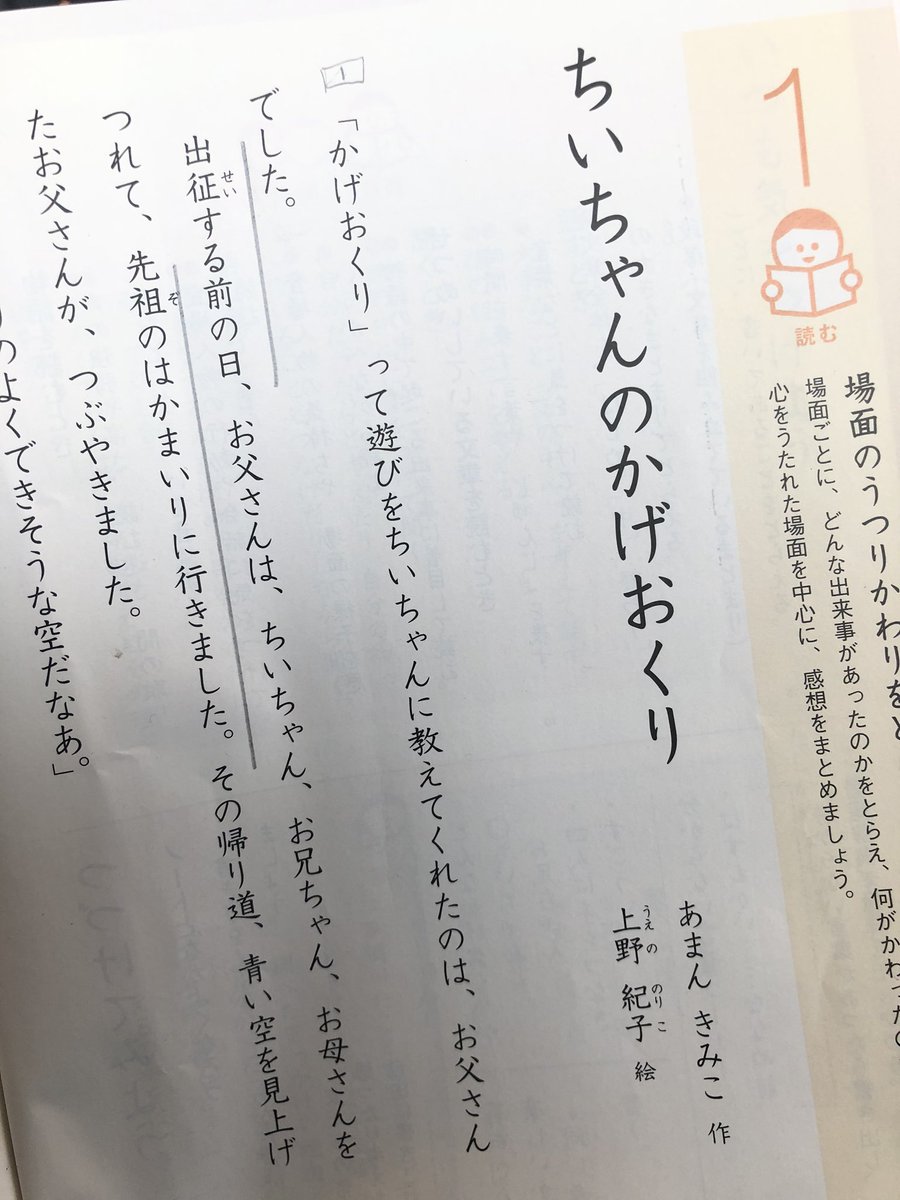 1
読む
場面のうつりかわりを
場面ごとに、どんな出来事があったのかをとらえ、何がかわった
心をうたれた場面を中心に、感想をまとめましょう。
ちいちゃんのかげおくり
あまん きみこ 作
上野 紀子 絵
うえの のりこ
1
「かげおくり」って遊びをちいちゃんに教えてくれたのは、お父さん
でした。
出征する前の日、お父さんは、ちいちゃん、お兄ちゃん、お母さんを
せい
つれて、先祖のはかまいりに行きました。その帰り道、青い空を見上げ
ぞ
たお父さんが、つぶやきました。
のよくできそうな空だなあ。」